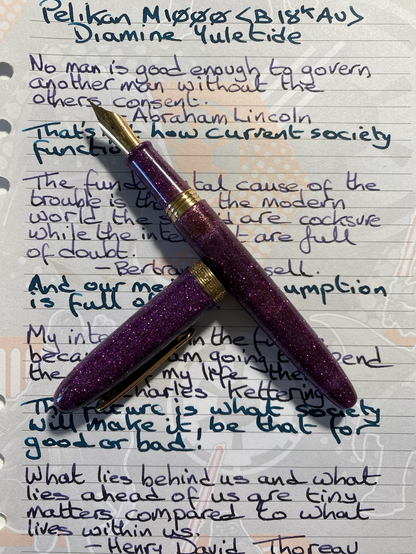 Pelikan M1000 <B 18k Au>
Diamine Yuletide
No man is good enough to govern
another man without the
others consent.
- Abraham Lincoln
That's how current society
functio
The fund tal cause of the
trouble is th the modern
world the s d are cocksure
while the inte t are full
of doubt.
- Bertra ssell.
And our me umption
is full o
My inte in the fu
becau am going to spend
the my life the
Charles Kettering
The future is what society
will make it, be that for
good or bad!
What lies behind us and what
lies ahead of us are tiny
matters compared to what
lives within us.
- Henry David Thoreau